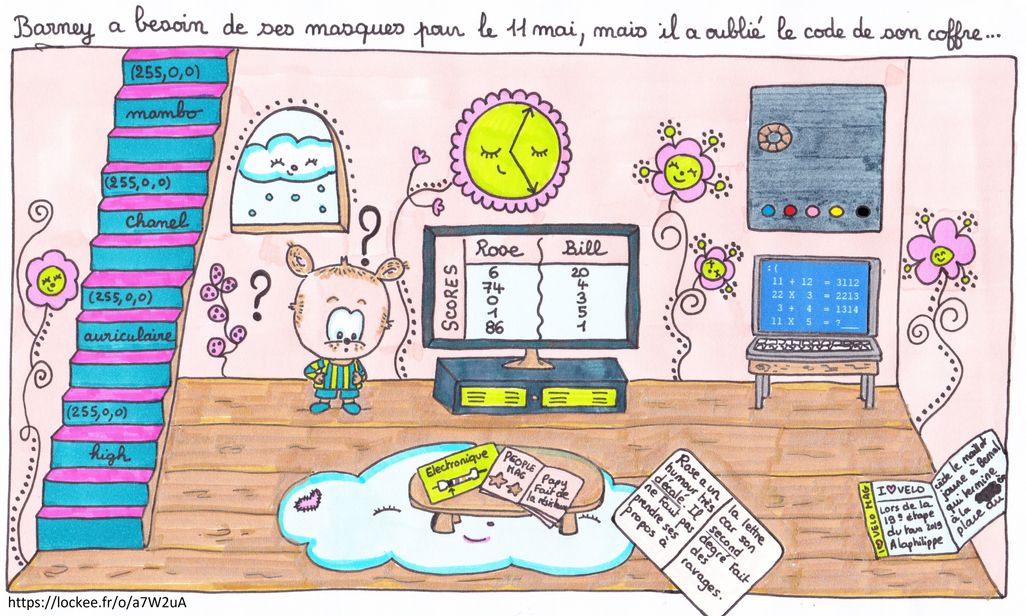 Barney a besoin de ses masques pour le 11 mai, mais il a oublié le code de son coffre...
(255,0,0)
mambo
(255,0,0)
Chanel
(255,0,0)
auriculaire
(255,0,0)
high
?
?
SCORES
Rose Bill
6 20
74 4
0 3
1 5
86 1
:(
11 + 12 = 3112
22 X 3 = 2213
3 + 4 = 1314
11 X 5 = ?___
Electronique
PEOPLE
MAG
Papy
Fait de
la résistance
Rose a un
humour très
décalé. Il
ne faut pas
prendre ses
propos à
la lettre
car son
second
degré fait
des
ravages.
I ♡ VELO MAG
I ♡ VELO
Lors de la
19e étape
du tour 2019
Alaphilippe
cède le maillot
jaune à Bernal
qui termine
à la
place du
https://lockee.fr/o/a7W2uA